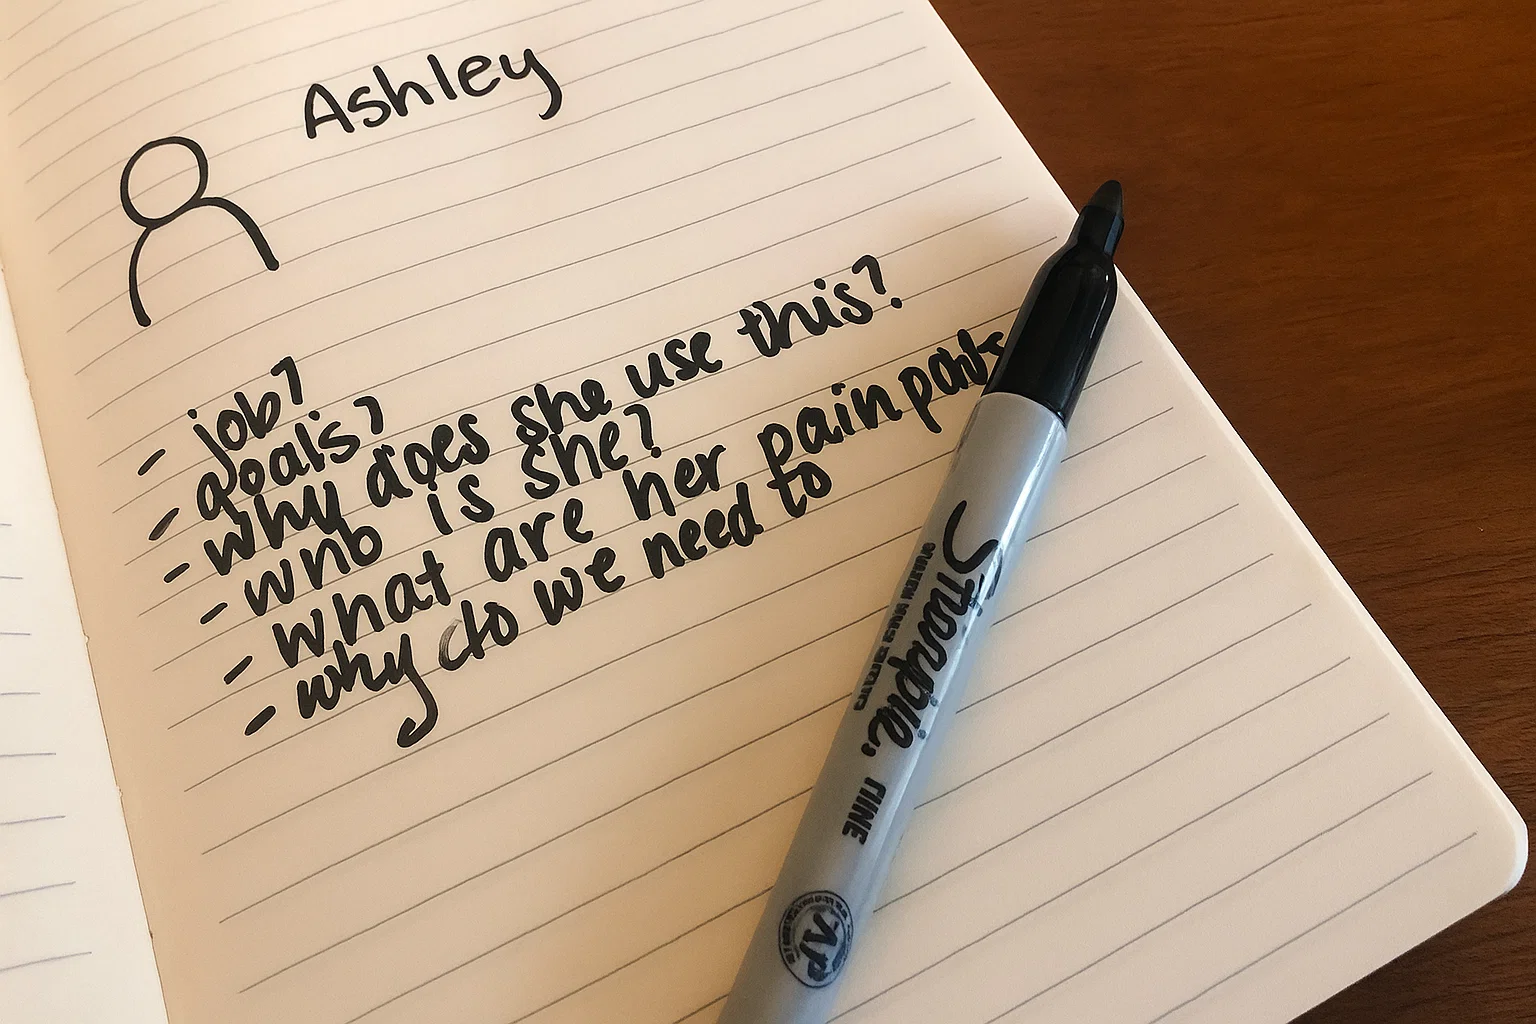 Ashley
- job?
- goals?
- why does she use this?
- who is she?
- what are her pain
- why do we need to
Sharpie
FINE
AP